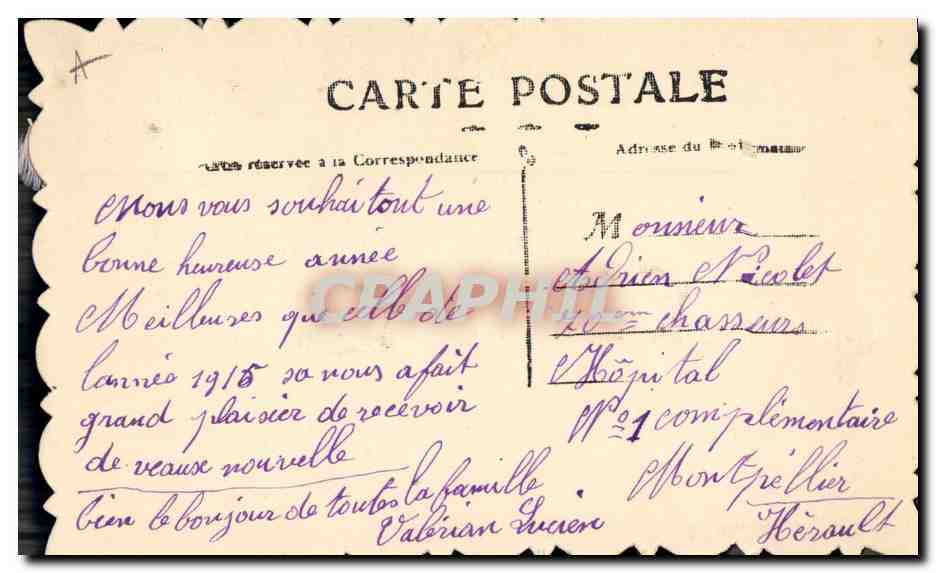 A
CARTE POSTALE
réservée à la Correspondance
Adresse du
Nous vous souhaitont une
bonne heureuse année
Meilleures que celle de
lannée 1915 sa nous a fait
grand plaisier de recevoir
de veaux nouvelle
bien le bonjour de toutes la famille
Valérian Lucien
Monsieur
Adrien Nicolet
chasseurs
Hôpital
No 1 complémentaire
Montpéllier
Hérault
CPAPHIL